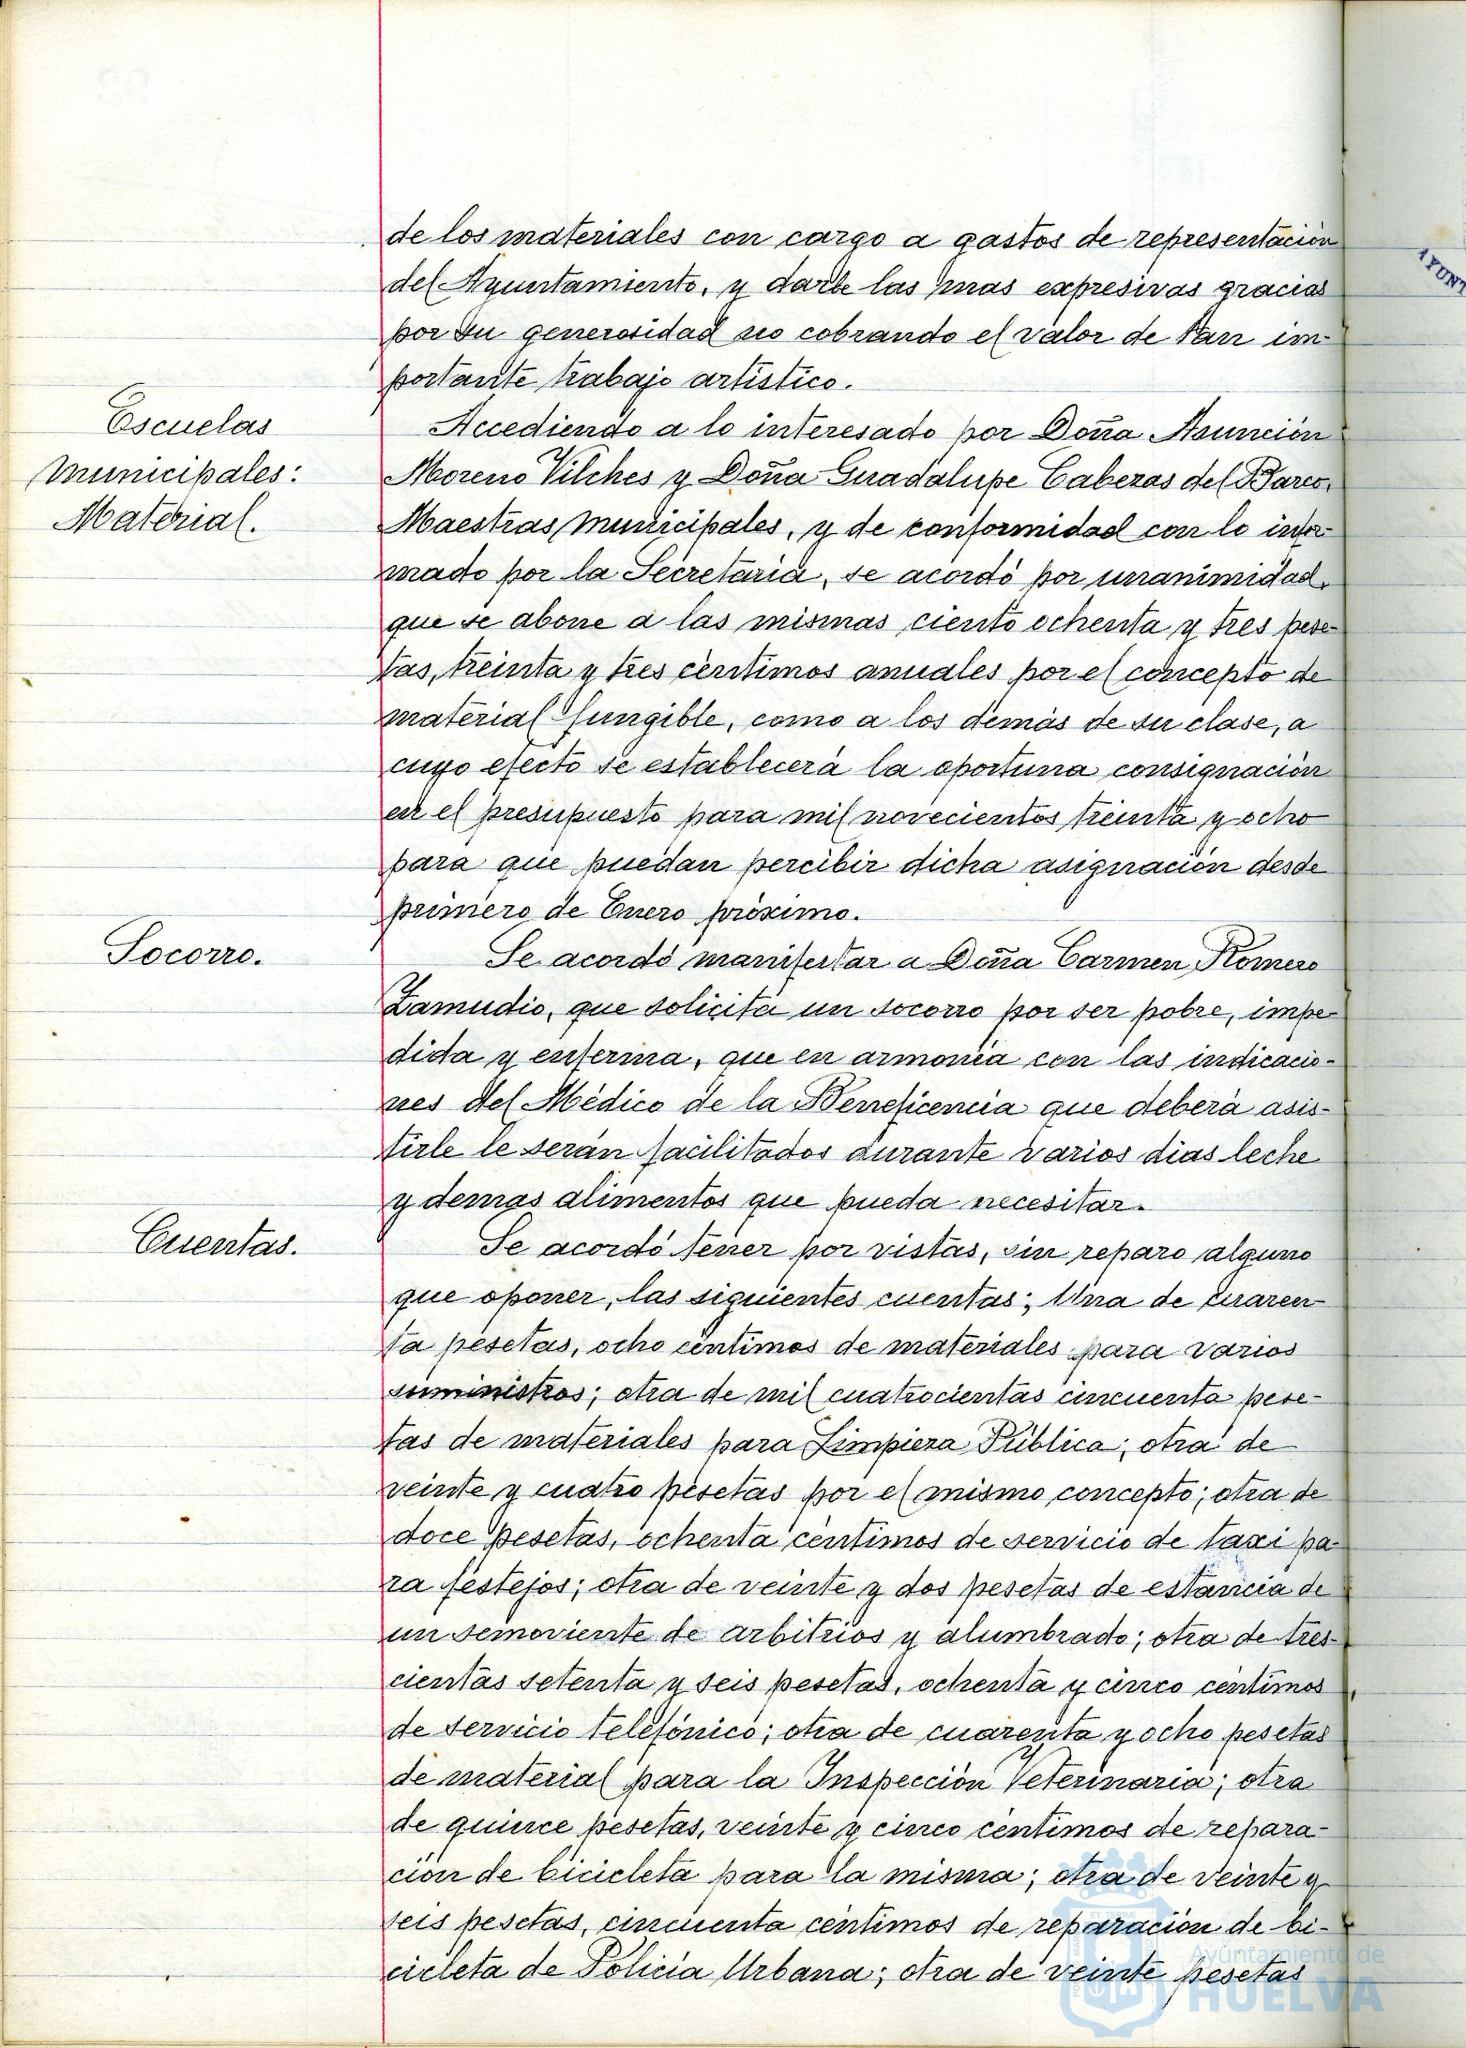 de los materiales con cargo a gastos de representación
del Ayuntamiento, y darle las mas expresivas gracias
por su generosidad no cobrando el valor de tan im-
portante trabajo artistico.
Escuelas
Municipales:
Material.
Accediendo a lo interesado por Doña Asunción
Moreno Vilches y Doña Guadalupe Cabezas del Barco,
Maestras Municipales, y de conformidad con lo infor-
mado por la Secretaria, se acordó por unanimidad,
que se abone a las mismas ciento ochenta y tres pese-
tas, treinta y tres centimos anuales por el concepto de
material fungible, como a los demás de su clase, a
cuyo efecto se establecerá la oportuna consignación
en el presupuesto para mil novecientos treinta y ocho
para que puedan percibir dicha asignación desde
primero de Enero próximo.
Socorro.
Se acordó manifestar a Doña Carmen Romero
Zamudio, que solicita un socorro por ser pobre, impe-
dida y enferma, que en armonia con las indicacio-
nes del Médico de la Beneficencia que deberá asis-
tirle le serán facilitados durante varios dias leche
y demas alimentos que pueda necesitar.
Cuentas.
Se acordó tener por vistas, sin reparo alguno
que oponer, las siguientes cuentas: Una de cuaren-
ta pesetas, ocho centimos de materiales para varios
suministros; otra de mil cuatrocientas cincuenta pese-
tas de materiales para Limpieza Pública; otra de
veinte y cuatro pesetas por el mismo concepto; otra de
doce pesetas, ochenta céntimos de servicio de taxi pa-
ra festejos; otra de veinte y dos pesetas de estancia de
un semoviente de arbitrios y alumbrado; otra de tres-
cientas setenta y seis pesetas, ochenta y cinco centimos
de servicio telefónico; otra de cuarenta y ocho pesetas
de material para la Inspección Veterinaria; otra
de quince pesetas, veinte y cinco centimos de repara-
ción de bicicleta para la misma; otra de veinte y
seis pesetas, cincuenta céntimos de reparación de bi-
cicleta de Policia Urbana; otra de veinte pesetas
Ayuntamiento de
HUELVA